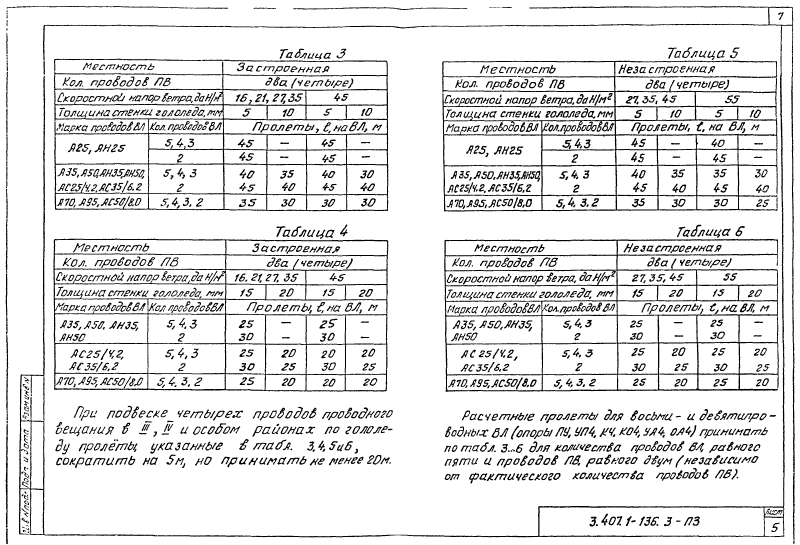 7
Таблица 3
Местность Застроенная
Кол. проводов ПВ два (четыре)
Скоростной напор ветра, даН/м² 16, 21, 27, 35 45
Толщина стенки гололеда, мм 5 10 5 10
Марка проводов ВЛ Кол. проводов ВЛ Пролеты, ℓ, на ВЛ, м
А25, АН25 5, 4, 3 45 — 45 —
2 45 — 45 —
А35, А50, АН35, АН50, 5, 4, 3 40 35 40 30
АС25/4.2, АС35/6.2 2 45 40 45 40
А70, А95, АС50/8.0 5, 4, 3, 2 35 30 30 30
Таблица 4
Местность Застроенная
Кол. проводов ПВ два (четыре)
Скоростной напор ветра, даН/м² 16, 21, 27, 35 45
Толщина стенки гололеда, мм 15 20 15 20
Марка проводов ВЛ Кол. проводов ВЛ Пролеты, ℓ, на ВЛ, м
А35, А50, АН35, 5, 4, 3 25 — 25 —
АН50 2 30 — 30 —
АС25/4.2, 5, 4, 3 25 20 20 20
АС35/6.2 2 30 25 30 25
А70, А95, АС50/8.0 5, 4, 3, 2 25 20 20 20
При подвеске четырех проводов проводного
вещания в III, IV и особом районах по гололе-
ду пролёты, указанные в табл. 3, 4, 5 и 6,
сократить на 5м, но принимать не менее 20м.
Таблица 5
Местность Незастроенная
Кол. проводов ПВ два (четыре)
Скоростной напор ветра, даН/м² 27, 35, 45 55
Толщина стенки гололеда, мм 5 10 5 10
Марка проводов ВЛ Кол. проводов ВЛ Пролеты, ℓ, на ВЛ, м
А25, АН25 5, 4, 3 45 — 40 —
2 45 — 45 —
А35, А50, АН35, АН50, 5, 4, 3 40 35 35 30
АС25/4.2, АС35/6.2 2 45 40 45 40
А70, А95, АС50/8.0 5, 4, 3, 2 35 30 30 25
Таблица 6
Местность Незастроенная
Кол. проводов ПВ два (четыре)
Скоростной напор ветра, даН/м² 27, 35, 45 55
Толщина стенки гололеда, мм 15 20 15 20
Марка проводов ВЛ Кол. проводов ВЛ Пролеты, ℓ, на ВЛ, м
А35, А50, АН35, 5, 4, 3 25 — 25 —
АН50 2 30 — 30 —
АС25/4.2, 5, 4, 3 25 20 25 20
АС35/6.2 2 30 25 30 25
А70, А95, АС50/8.0 5, 4, 3, 2 25 20 25 20
Расчетные пролеты для восьми- и девятипро-
водных ВЛ (опоры ПУ, УП4, К4, КО4, УА4, ОА4) принимать
по табл. 3...6 для количества проводов ВЛ, равного
пяти и проводов ПВ, равного двум (независимо
от фактического количества проводов ПВ).
Подп. и дата
3.407.1-136.3-ПЗ
Лист
5